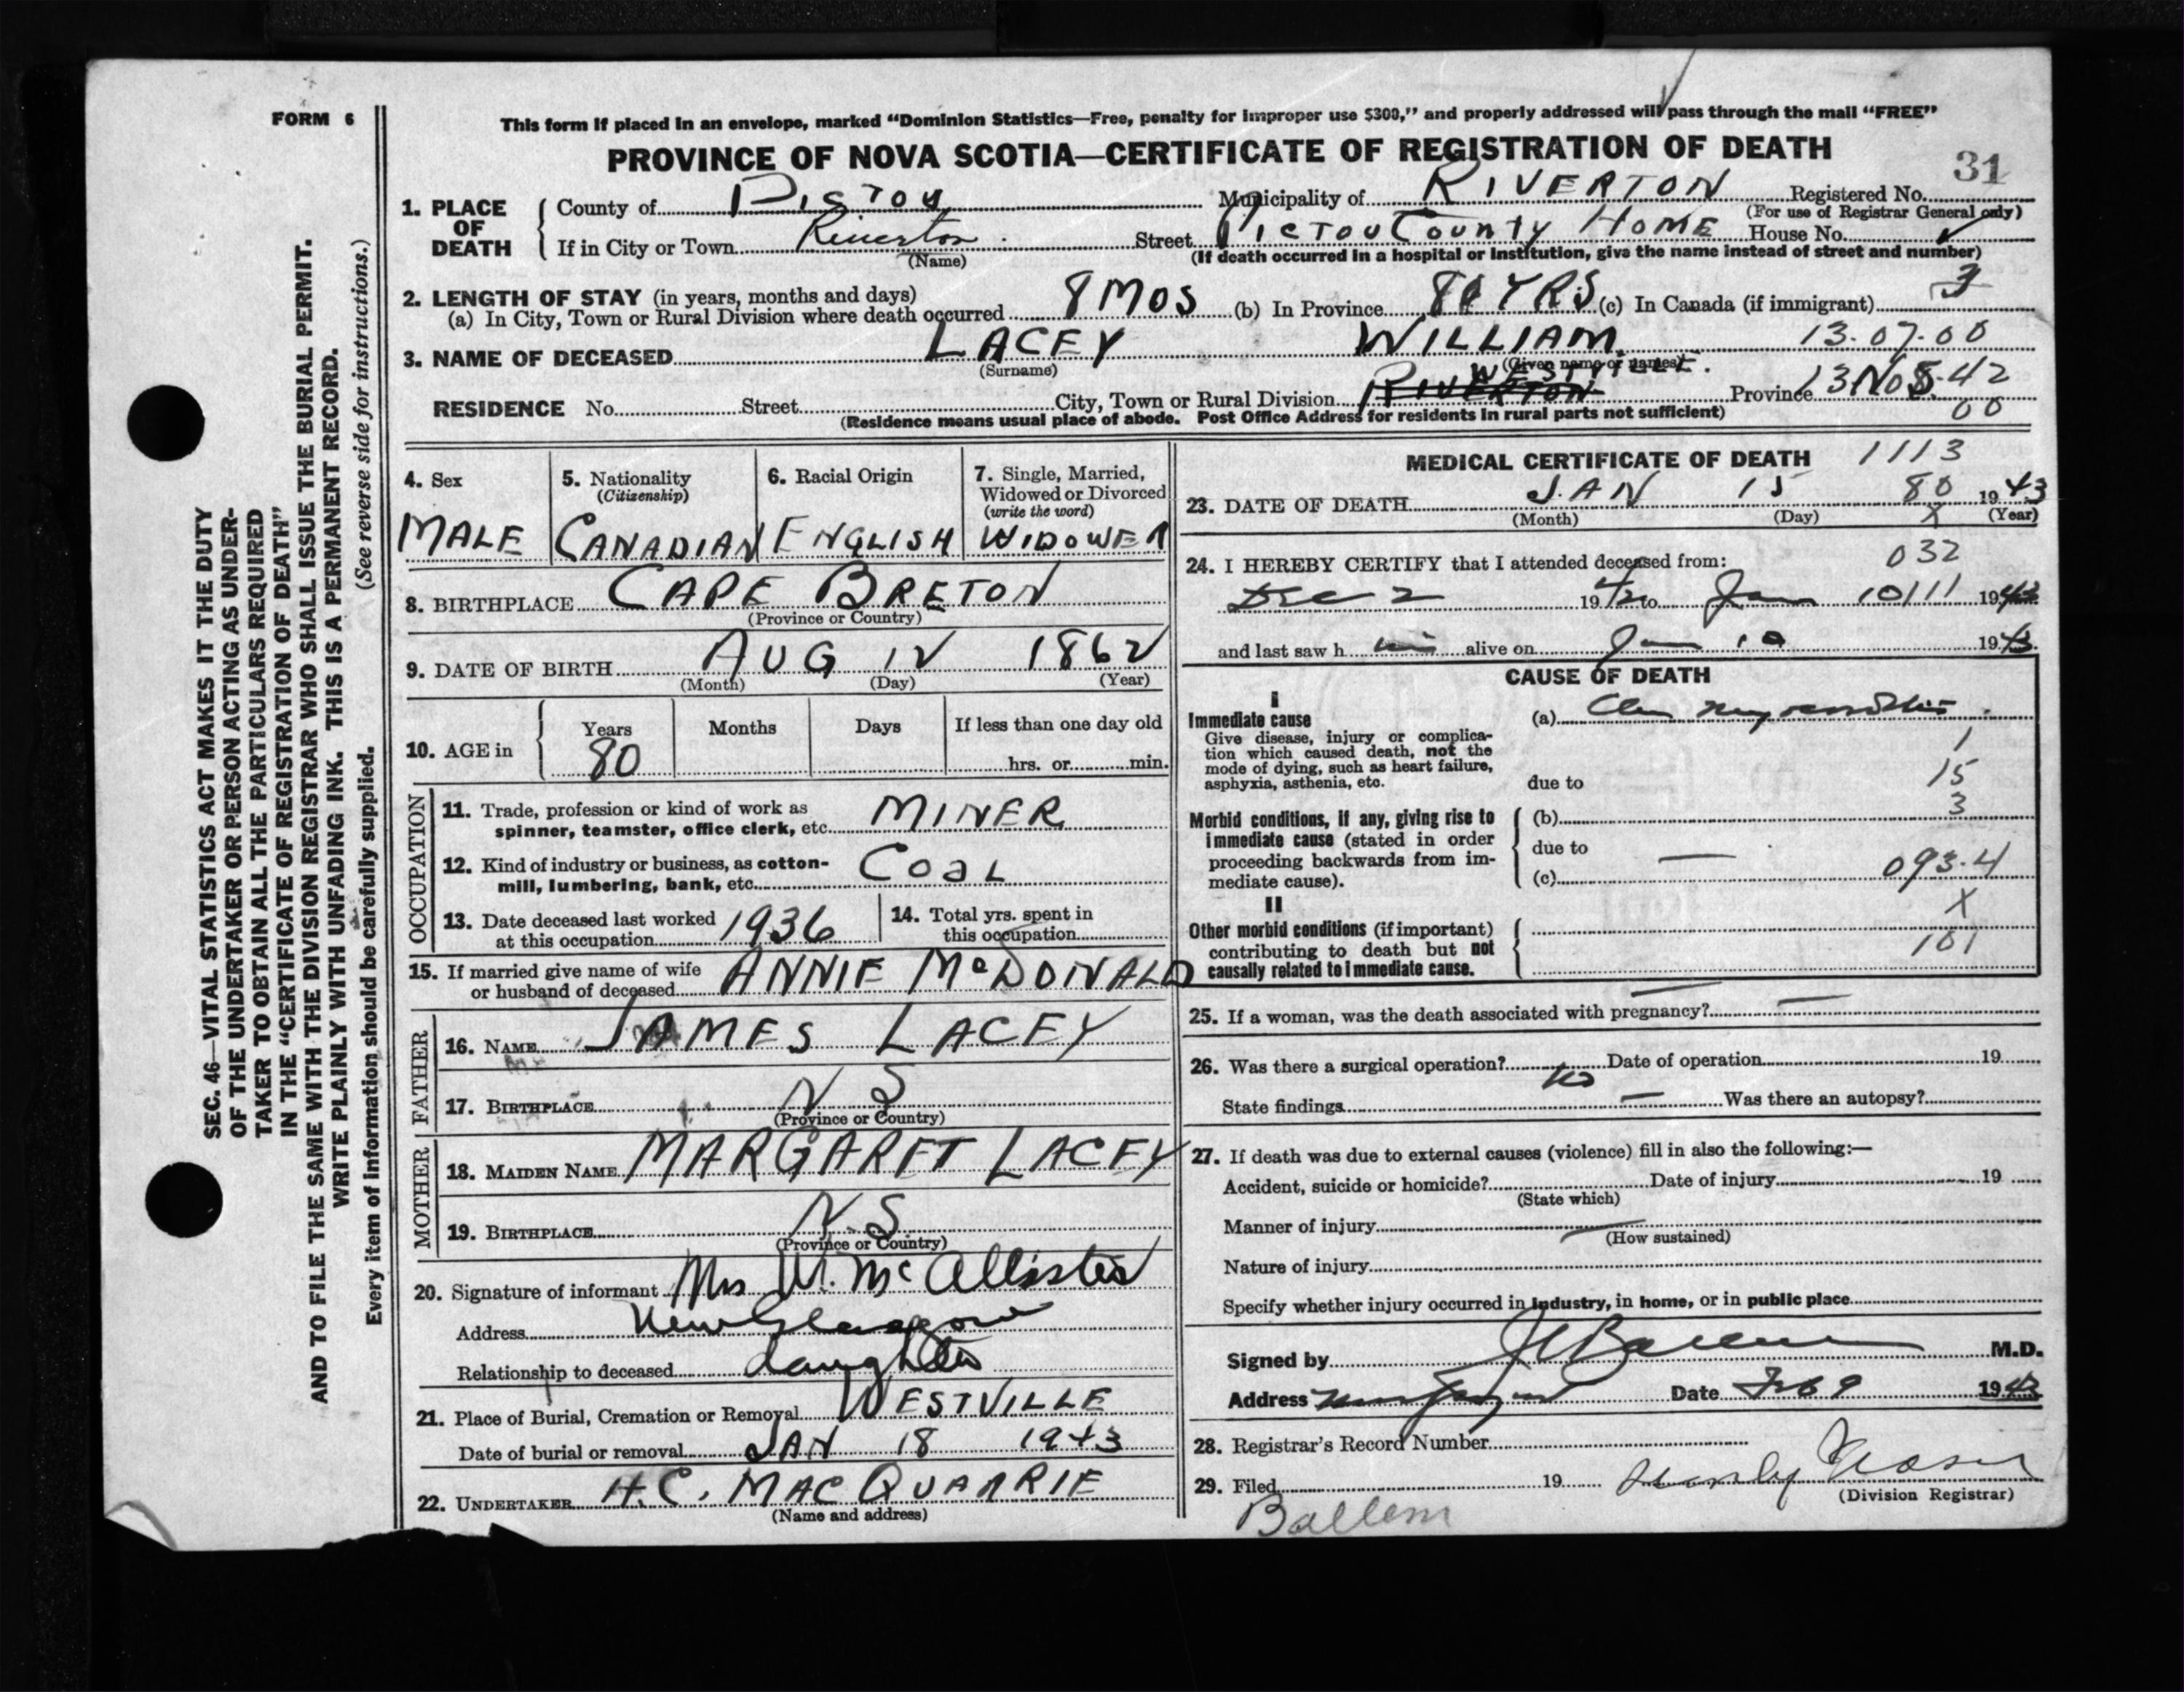 FORM 6
This form if placed in an envelope, marked "Dominion Statistics—Free, penalty for improper use $300," and properly addressed will pass through the mail "FREE"
PROVINCE OF NOVA SCOTIA—CERTIFICATE OF REGISTRATION OF DEATH
31
1. PLACE OF DEATH
County of PICTOU Municipality of RIVERTON Registered No.
(For use of Registrar General only)
If in City or Town Riverton Street PICTOU COUNTY HOME House No.
(Name)
(If death occurred in a hospital or institution, give the name instead of street and number)
2. LENGTH OF STAY (in years, months and days)
(a) In City, Town or Rural Division where death occurred 8 MOS (b) In Province 80 YRS (c) In Canada (if immigrant) 3
3. NAME OF DECEASED LACEY WILLIAM 13-07-00
(Surname) (Given name or names)
WESTVILLE.
RESIDENCE No. Street City, Town or Rural Division RIVERTON Province
00
(Residence means usual place of abode. Post Office Address for residents in rural parts not sufficient)
4. Sex
MALE
5. Nationality
(Citizenship)
CANADIAN
6. Racial Origin
ENGLISH
7. Single, Married,
Widowed or Divorced
(write the word)
WIDOWER
8. BIRTHPLACE CAPE BRETON
(Province or Country)
9. DATE OF BIRTH AUG 12 1862
(Month) (Day) (Year)
10. AGE in
Years Months Days If less than one day old
80 hrs. or min.
OCCUPATION
11. Trade, profession or kind of work as
spinner, teamster, office clerk, etc. MINER
12. Kind of industry or business, as cotton-
mill, lumbering, bank, etc. COAL
13. Date deceased last worked
at this occupation 1936
14. Total yrs. spent in
this occupation
15. If married give name of wife
or husband of deceased ANNIE McDONALD
FATHER
16. NAME JAMES LACEY
17. BIRTHPLACE N S
(Province or Country)
MOTHER
18. MAIDEN NAME MARGARET LACEY
19. BIRTHPLACE N.S.
(Province or Country)
20. Signature of informant Mrs W. McAllister
Address New Glasgow
Relationship to deceased daughter
21. Place of Burial, Cremation or Removal WESTVILLE
Date of burial or removal JAN 18 1943
22. UNDERTAKER H.C. MACQUARRIE
(Name and address)
MEDICAL CERTIFICATE OF DEATH 1113
23. DATE OF DEATH JAN 15 80 1943
(Month) (Day) X (Year)
032
24. I HEREBY CERTIFY that I attended deceased from:
Dec 2 1942 to Jan 10/11 1943
and last saw him alive on Jan 10 1943
CAUSE OF DEATH
I
Immediate cause
Give disease, injury or complica-
tion which caused death, not the
mode of dying, such as heart failure,
asphyxia, asthenia, etc.
(a)
1
15
due to
3
Morbid conditions, if any, giving rise to
immediate cause (stated in order
proceeding backwards from im-
mediate cause).
(b)
due to
(c) 093.4
X
II
Other morbid conditions (if important)
contributing to death but not
causally related to immediate cause.
101
25. If a woman, was the death associated with pregnancy? —
26. Was there a surgical operation? No Date of operation 19
State findings — Was there an autopsy?
27. If death was due to external causes (violence) fill in also the following:—
Accident, suicide or homicide? Date of injury 19
(State which)
Manner of injury —
(How sustained)
Nature of injury
Specify whether injury occurred in industry, in home, or in public place
Signed by M.D.
Address New Glasgow Date Feb 9 1943
28. Registrar's Record Number
29. Filed 19
(Division Registrar)
Ballem
SEC. 46—VITAL STATISTICS ACT MAKES IT THE DUTY
OF THE UNDERTAKER OR PERSON ACTING AS UNDER-
TAKER TO OBTAIN ALL THE PARTICULARS REQUIRED
IN THE "CERTIFICATE OF REGISTRATION OF DEATH"
AND TO FILE THE SAME WITH THE DIVISION REGISTRAR WHO SHALL ISSUE THE BURIAL PERMIT.
WRITE PLAINLY WITH UNFADING INK. THIS IS A PERMANENT RECORD.
Every item of information should be carefully supplied. (See reverse side for instructions.)